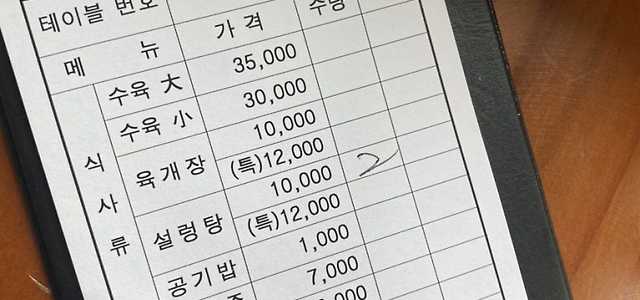 테이블 번호
메 뉴 가 격 수량
식사류
수육 大 35,000
수육 小 30,000
육개장 10,000
(특)12,000
설렁탕 10,000 2
(특)12,000
공기밥 1,000
7,000